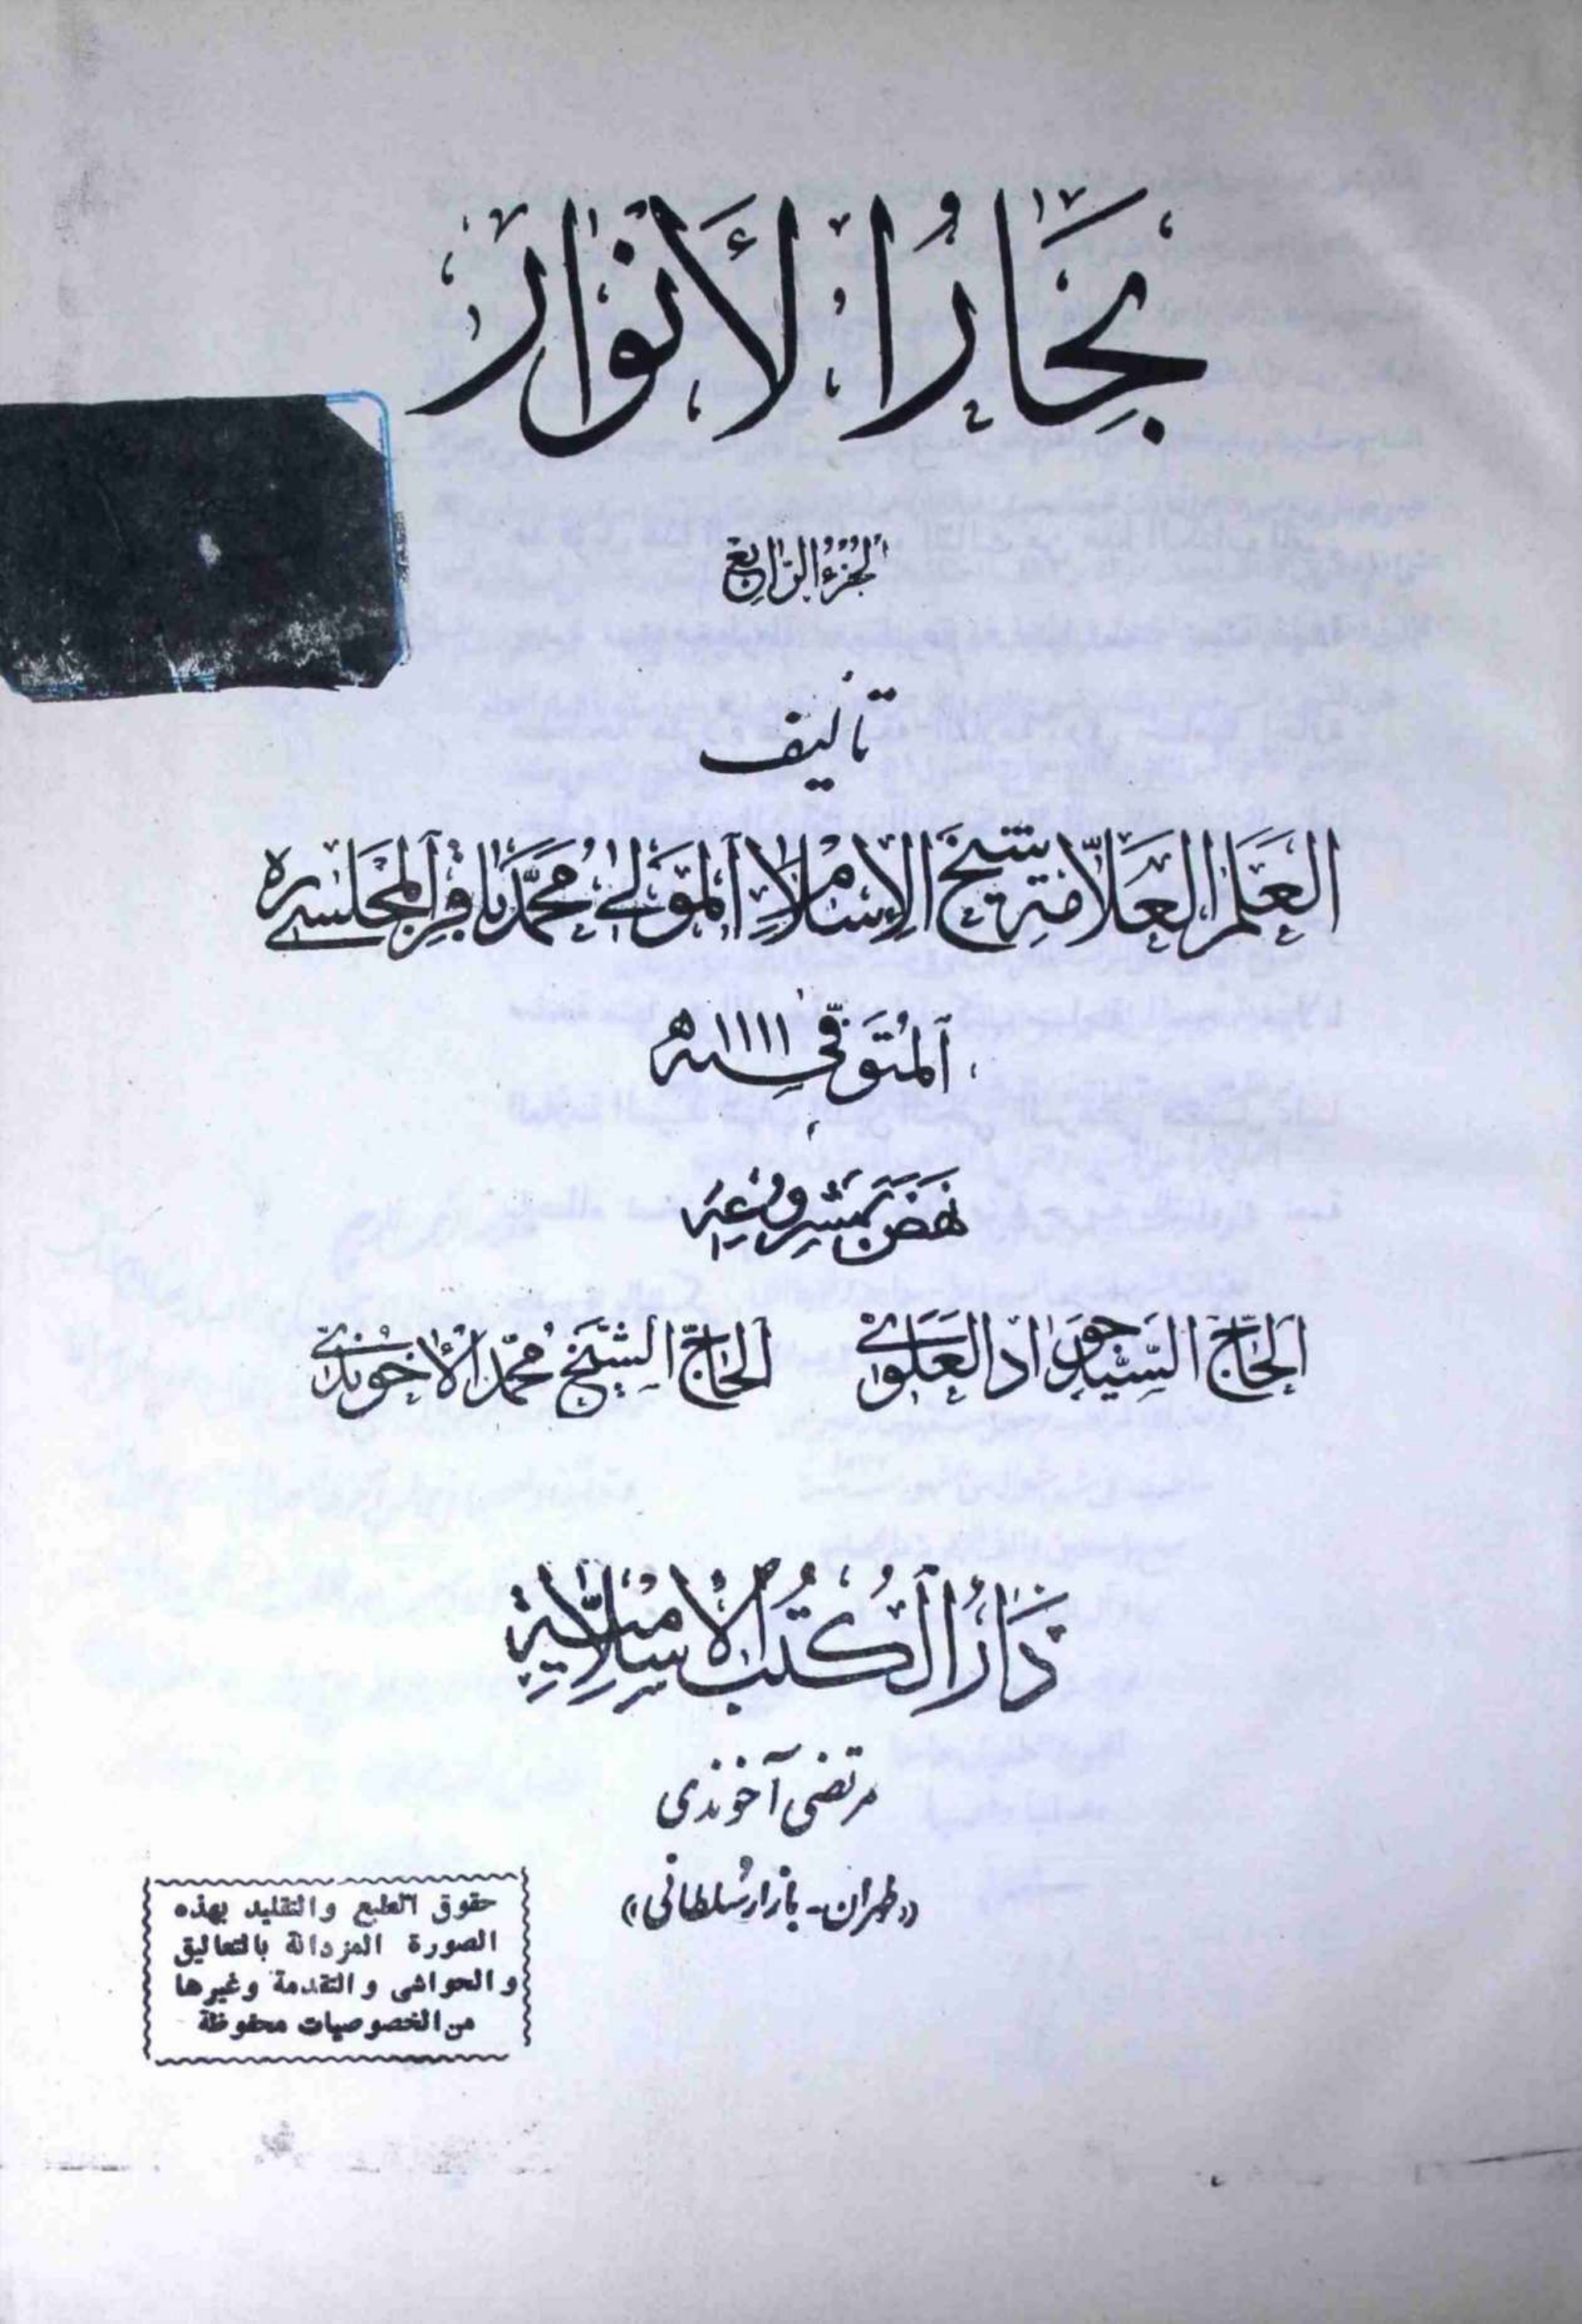 بِحَارُ الْأَنْوَار
الجزء الرابع
تأليف
العلم العلامة شيخ الإسلام المولى محمد باقر المجلسي ره
المتوفى سنة ١١١١ ه
نهض بمشروعه
الحاج السيد جواد العلوي الحاج الشيخ محمد الآخوندي
دار الكتب الاسلامية
مرتضى آخوندى
«طهران - بازار سلطانى»
حقوق الطبع والتقليد بهذه
الصورة المزدانة بالتعاليق
و الحواشى و التقدمة وغيرها
من الخصوصيات محفوظة